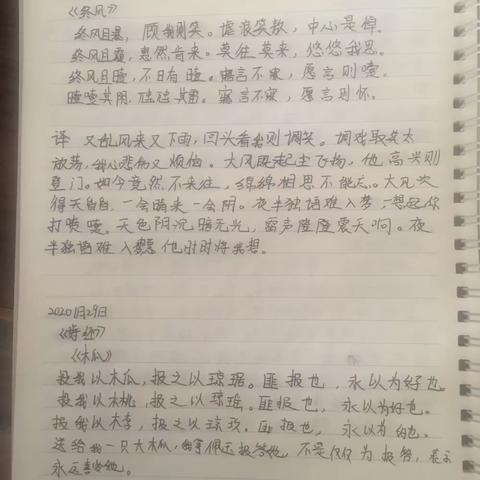 《终风》
终风且暴，顾我则笑。谑浪笑敖，中心是悼。
终风且霾，惠然肯来。莫往莫来，悠悠我思。
终风且曀，不日有曀。寤言不寐，愿言则嚏。
曀曀其阴，虺虺其雷。寤言不寐，愿言则怀。
译 又乱风来又下雨，回头看我则调笑。调戏取笑太
放荡，我心悲伤又烦恼。大风既起尘飞扬，他高兴则
登门。如今竟然不来往，绵绵相思不能忘。大风次
得天自自，一会晴来一会阴。夜半独语难入梦，想起你
打喷嚏。天色阴沉暗无光，雷声隆隆震天响。夜
半独语难入 他
2020 29日
《木瓜》
投我以木瓜，报之以琼琚。匪报也，永以为好也
投我以木桃，报之以琼瑶。匪报也，永以为好也。
报我以木李，报之以琼玖。匪报也，永以为 也。
送给我一只大木瓜，我拿佩玉报答他，不是仅仅为报答，表示
永远 他。